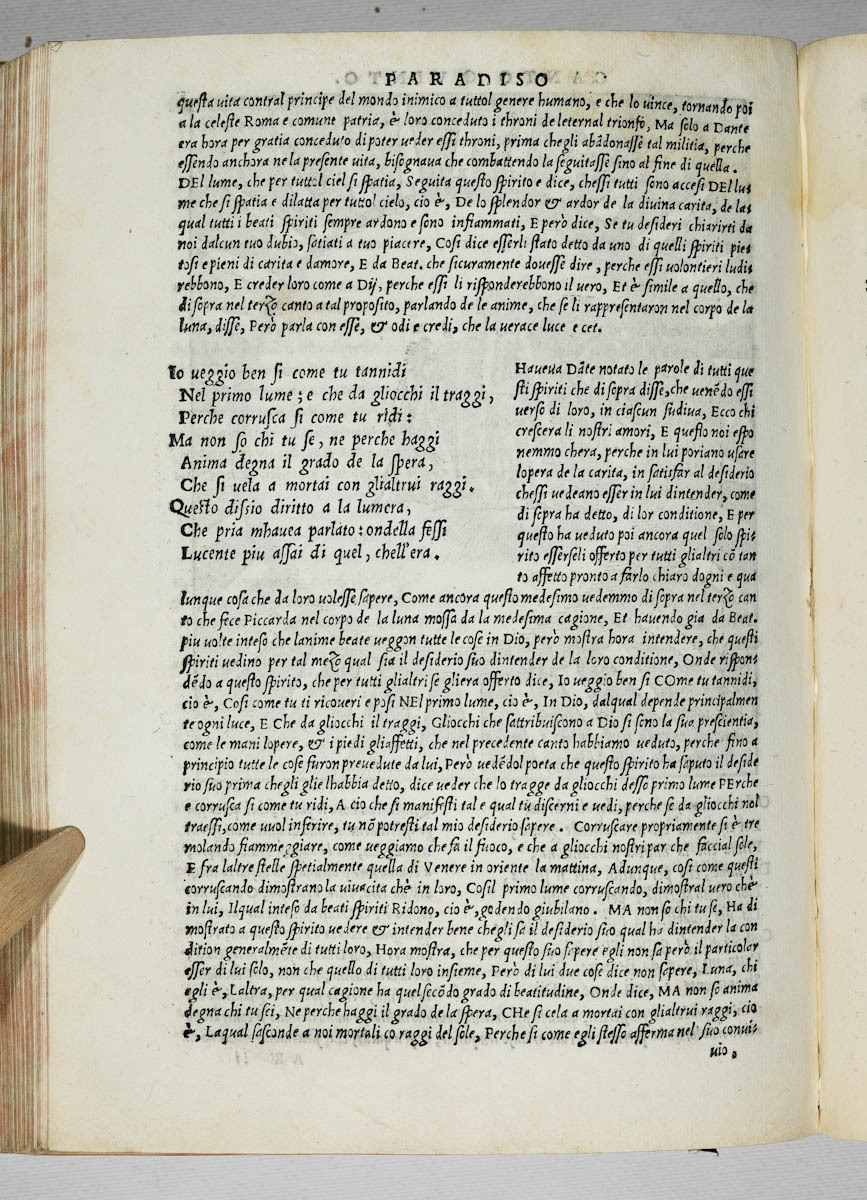 PARADISO
questa uita contral principe del mondo inimico a tuttol genere humano, e che lo uince, tornando poi
a la celeste Roma e comune patria, è loro conceduto i throni de leternal trionfo, Ma solo a Dante
era hora per gratia conceduto di poter ueder essi throni, prima chegli abādonasse tal militia, perche
essendo anchora ne la presente uita, bisognaua che combattendo la seguitasse sino al fine di quella.
DEl lume, che per tuttol ciel si spatia, Seguita questo spirito e dice, chessi tutti sono accesi DEl lu-
me che si spatia e dilatta per tuttol cielo, cio è, De lo splendor & ardor de la diuina carita, de la
qual tutti i beati spiriti sempre ardono e sono infiammati, E però dice, Se tu desideri chiarirti da
noi dalcun tuo dubio, satiati a tuo piacere, Cosi dice esserli stato detto da uno di quelli spiriti pie-
tosi e pieni di carita e damore, E da Beat. che sicuramente douesse dire, perche essi uolontieri ludi-
rebbono, E creder loro come a Dij, perche essi li risponderebbono il uero, Et è simile a quello, che
di sopra nel terzo canto a tal proposito, parlando de le anime, che se li rappresentaron nel corpo de la
luna, disse, Però parla con esse, & odi e credi, che la uerace luce e cet.
Io ueggio ben si come tu tannidi
Nel primo lume; e che da gliocchi il traggi,
Perche corrusca si come tu ridi:
Ma non so chi tu se, ne perche haggi
Anima degna il grado de la spera,
Che si uela a mortai con glialtrui raggi.
Questo dissio diritto a la lumera,
Che pria mhauea parlato: ondella fessi
Lucente piu assai di quel, chell'era.
Haueua Dāte notato le parole di tutti que
sti spiriti che di sopra disse, che uenēdo essi
uerso di loro, in ciascun sudiua, Ecco chi
crescera li nostri amori, E questo noi espo
nemmo chera, perche in lui poriano usare
lopera de la carita, in satisfar al desiderio
chessi uedeano esser in lui dintender, come
di sopra ha detto, di lor conditione, E per
questo ha ueduto poi ancora quel solo spi-
rito esserseli offerto per tutti glialtri cō tan
to affetto pronto a farlo chiaro dogni e qua
lunque cosa che da loro uolesse sapere, Come ancora questo medesimo uedemmo di sopra nel terzo can
to che fece Piccarda nel corpo de la luna mossa da la medesima cagione, Et hauendo gia da Beat.
piu uolte inteso che lanime beate ueggon tutte le cose in Dio, però mostra hora intendere, che questi
spiriti uedino per tal mezo qual sia il desiderio suo dintender de la loro conditione, Onde rispon-
dēdo a questo spirito, che per tutti glialtri se gliera offerto dice, Io ueggio ben si COme tu tannidi,
cio è, Cosi come tu ti ricoueri e posi NEl primo lume, cio è, In Dio, dalqual depende principalmen
te ogni luce, E Che da gliocchi il traggi, Gliocchi che sattribuiscono a Dio si sono la sua prescientia,
come le mani lopere, & i piedi gliaffetti, che nel precedente canto habbiamo ueduto, perche fino a
principio tutte le cose furon preuedute da lui, Però uedēdol poeta che questo spirito ha saputo il deside
rio suo prima chegli glie lhabbia detto, dice ueder che lo tragge da gliocchi desso primo lume PErche
e corrusca si come tu ridi, A cio che si manifesti tal e qual tu discerni e uedi, perche se da gliocchi nol
traessi, come uuol inferire, tu nō potresti tal mio desiderio sapere. Corruscare propriamente si è tre
molando fiammeggiare, come ueggiamo che fa il fuoco, e che a gliocchi nostri par che faccial sole,
E fra laltre stelle spetialmente quella di Venere in oriente la mattina, Adunque, cosi come questi
corruscando dimostrano la uiuacita chè in loro, Cosil primo lume corruscando, dimostral uero chè
in lui, Ilqual inteso da beati spiriti Ridono, cio è, godendo giubilano. MA non so chi tu se, Ha di
mostrato a questo spirito uedere & intender bene chegli sa il desiderio suo qual ha dintender la con
dition generalmēte di tutti loro, Hora mostra, che per questo suo sapere egli non sa però il particolar
esser di lui solo, non che quello di tutti loro insieme, Però di lui due cose dice non sapere, Luna, chi
egli è, Laltra, per qual cagione ha quel secōdo grado di beatitudine, Onde dice, MA non so anima
degna chi tu sei, Ne perche haggi il grado de la spera, CHe si cela a mortai con glialtrui raggi, cio
è, Laqual sasconde a noi mortali co raggi del sole, Perche si come egli stesso afferma nel suo conui-
uio.